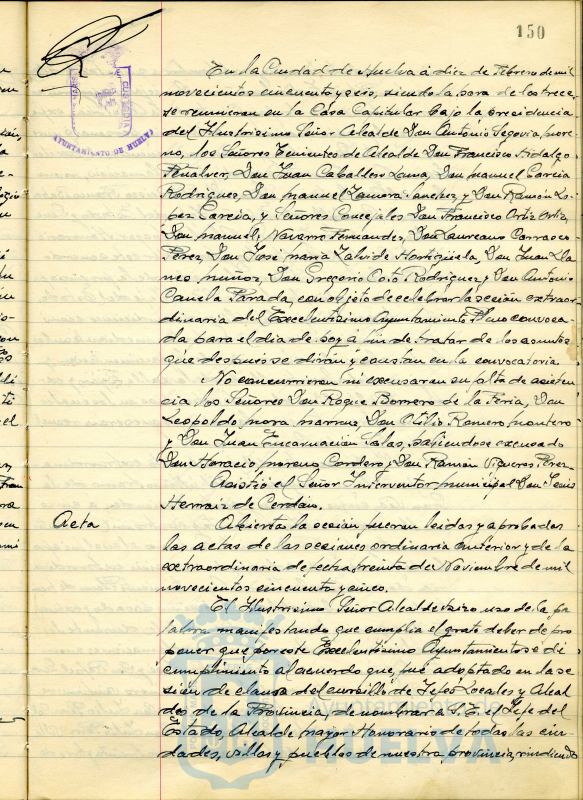 150
AYUNTAMIENTO DE HUELVA
En la Ciudad de Huelva á diez de Febrero de mil
novecientos cincuenta y seis, siendo la hora de las trece
se reunieron en la Casa Capitular bajo la presidencia
del Ilustrisimo Señor Alcalde Don Antonio Segovia More-
no, los Señores Tenientes de Alcalde Don Francisco Hidalgo
Peñalver, Don Juan Caballero Luna, Don Manuel Garcia
Rodriguez, Don Manuel Zamora Sanchez y Don Ramón Ló-
pez Garcia, y Señores Concejales Don Francisco Ortiz Ortiz,
Don Manuel Navarro Fernandez, Don Laureano Carrasco
Perez, Don José Maria Zalvide Hortigüela, Don Juan Lla-
nes Muñoz, Don Gregorio Coto Rodriguez y Don Antonio
Canela Parada, con objeto de celebrar la sesión extraor-
dinaria del Excelentisimo Ayuntamiento Pleno convoca-
da para el dia de hoy a fin de tratar de los asuntos
que despues se dirán y constan en la convocatoria.
No concurrieron ni excusaron su falta de asisten-
cia los Señores Don Roque Borrero de la Feria, Don
Leopoldo Mora Don Otilio Romero Montero
y Don Juan Encarnación Salas, habiendose excusado
Don Horacio Moreno Cordero y Don Ramón Perez.
Asistió el Señor Interventor municipal Don Jesus
Herraiz de Cerdán.
Acta
Abierta la sesión fueron leidas y aprobadas
las actas de las sesiones ordinaria anterior y de la
extraordinaria de fecha treinta de Noviembre de mil
novecientos cincuenta y cinco.
El Ilustrisimo Señor Alcalde hizo uso de la pa-
labra manifestando que cumplia el grato deber de pro-
poner que por este Excelentisimo Ayuntamiento se dé
cumplimiento al acuerdo que fué adoptado en la se-
sión de clausura del cursillo de Jefes Locales y Alcal-
des de la Provincia, de nombrar a S.E. el Jefe del
Estado, Alcalde mayor Honorario de todas las ciu-
dades, villas y pueblos de nuestra provincia, rindiendo